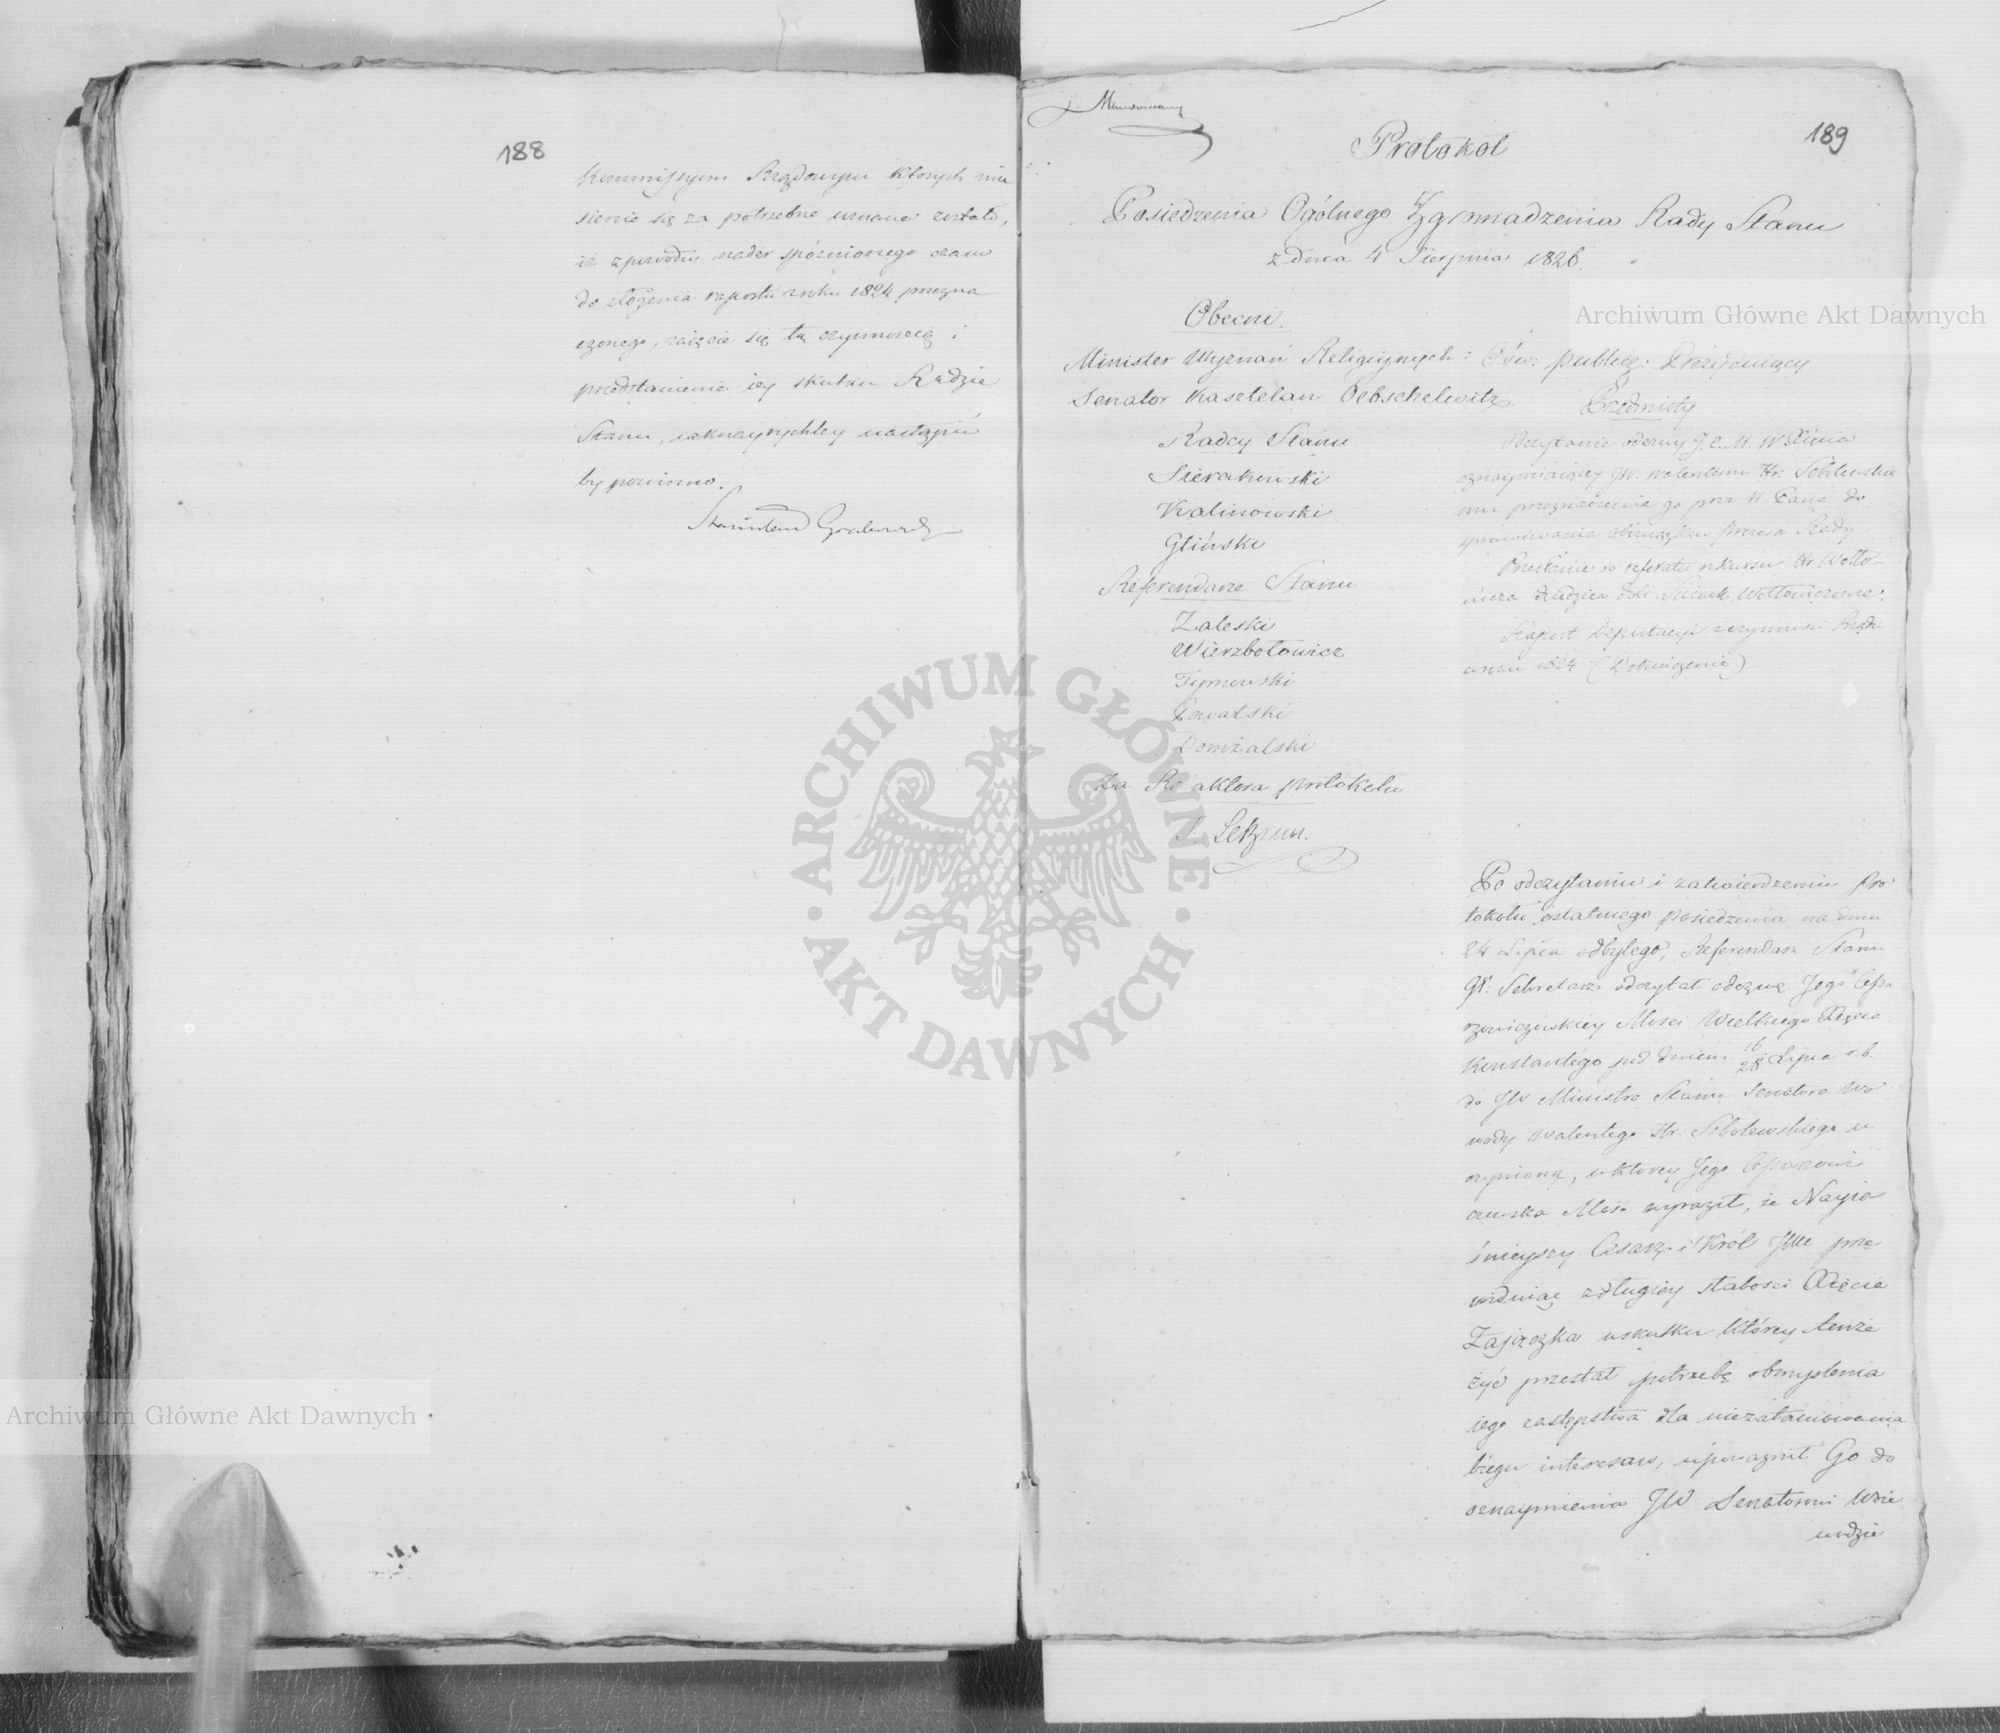 188
Kommissyom Rządowym których wnie
sienie się za potrzebne uznane zostało,
iż z powodu nader spóźnionego czasu
do złożenia raportu z roku 1824 przezna
czonego, zajęcie się tą czynnością i
przedstawienie iey skutku Radzie
Stanu, iaknayrychley nastąpić
by powinno.
Stanisław Grabowski
189
Protokół
Posiedzenia Ogólnego Zgromadzenia Rady Stanu
z dnia 4 Sierpnia 1826.
Obecni.
Minister Wyznań Religiynych i Ośw: publicz: Prezyduiący
Senator Kasztelan Oebschelwitz.
Radcy Stanu
Sierakowski
Kalinowski
Gliński
Referendarze Stanu
Zaleski
Wierzbołowicz
Tymowski
Kowalski
Domżalski
Za Redaktora protokołu
Przedmioty
Odczytanie odezwy J. C. M. W. Xięcia
oznaymiaiącey JW. Walentemu Hr. Sobolewskie
mu przeznaczenie go przez N. Pana do
sprawowania obowiązków Prezesa Rady
Przesłanie do referatu rekursu Hr Wołło-
wicza dziedzica dóbr
Raport Deputacyi czynności Rządu
z roku 1824 (Dokończenie)
Po odczytaniu i zatwierdzeniu Pro
tokołu ostatniego posiedzenia na dniu
24 Lipca odbytego, Referendarz Stanu
Gł. Sekretarz odczytał odezwę Jego Cesa
rzewiczowskiey Mości Wielkiego Xięcia
Konstantego pod dniem 16/28 Lipca r.b.
do JW Ministra Stanu Senatora Wo
wody Walentego Hr. Sobolewskiego u
czynioną, w ktorey Jego Cesarzewi
czowska Mość wyraził, że Nayia
śnieyszy Cesarz i Król Jmć prze
widuiąc z długiey słabości Xięcia
Zajączka w skutku którey tenże
żyć przestał potrzebę obmyślenia
iego zastępstwa dla niezatamowania
biegu interesów, upoważnił Go do
oznaymienia JW Senatorowi Woie
wodzie
Archiwum Główne Akt Dawnych
Archiwum Główne Akt Dawnych
ARCHIWUM GŁÓWNE · AKT DAWNYCH ·